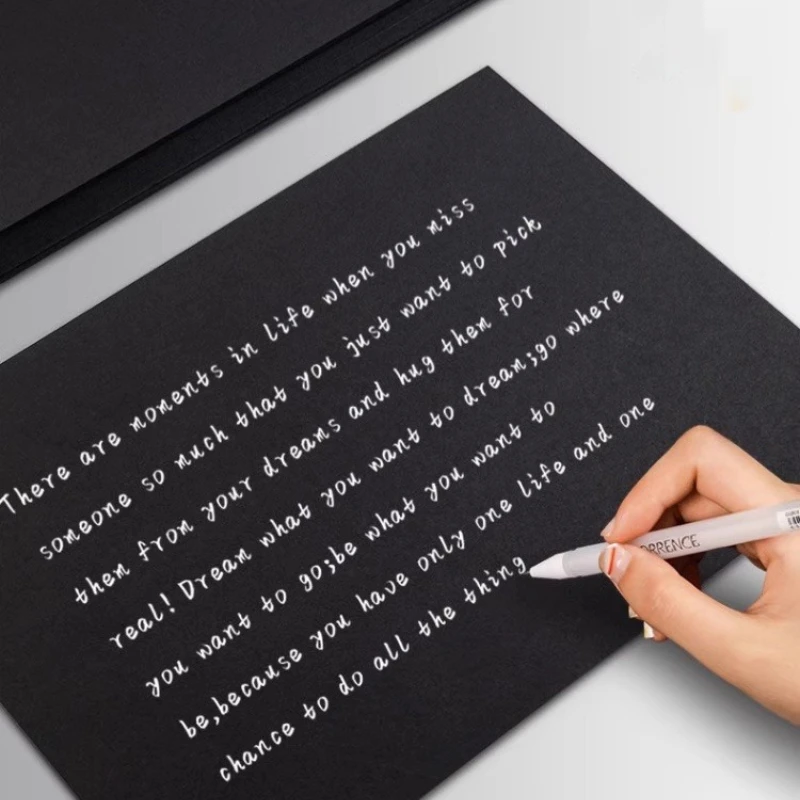 There are moments in life when you miss
someone so much that you just want to pick
them from your dreams and hug them for
real! Dream what you want to dream;go where
you want to go;be what you want to
be,because you have only one life and one
chance to do all the thing
ORRENCE